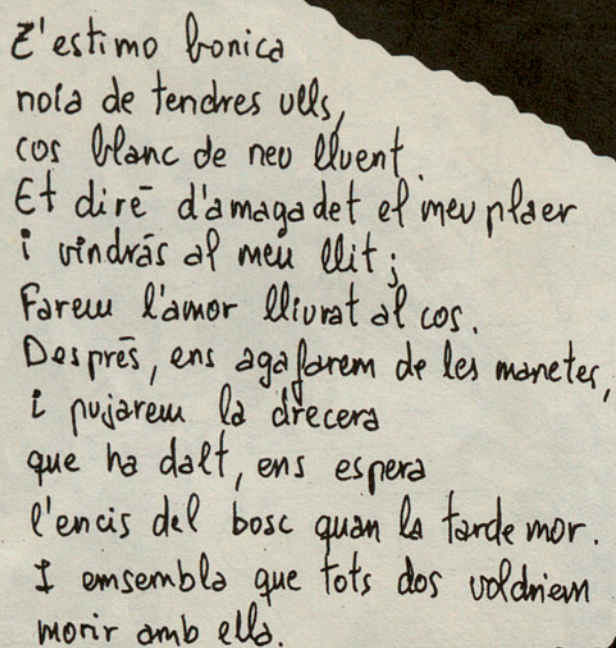 T'estimo bonica
noia de tendres ulls,
cos blanc de neu lluent.
Et dirē d'amagadet el meu plaer
i vindrās al meu llit;
Farem l'amor lliurat al cos.
Desprēs, ens agafarem de les manetes,
i pujarem la drecera
que ha dalt, ens espera
l'encis del bosc quan la tarde mor.
I emsembla que tots dos voldriem
morir amb ella.